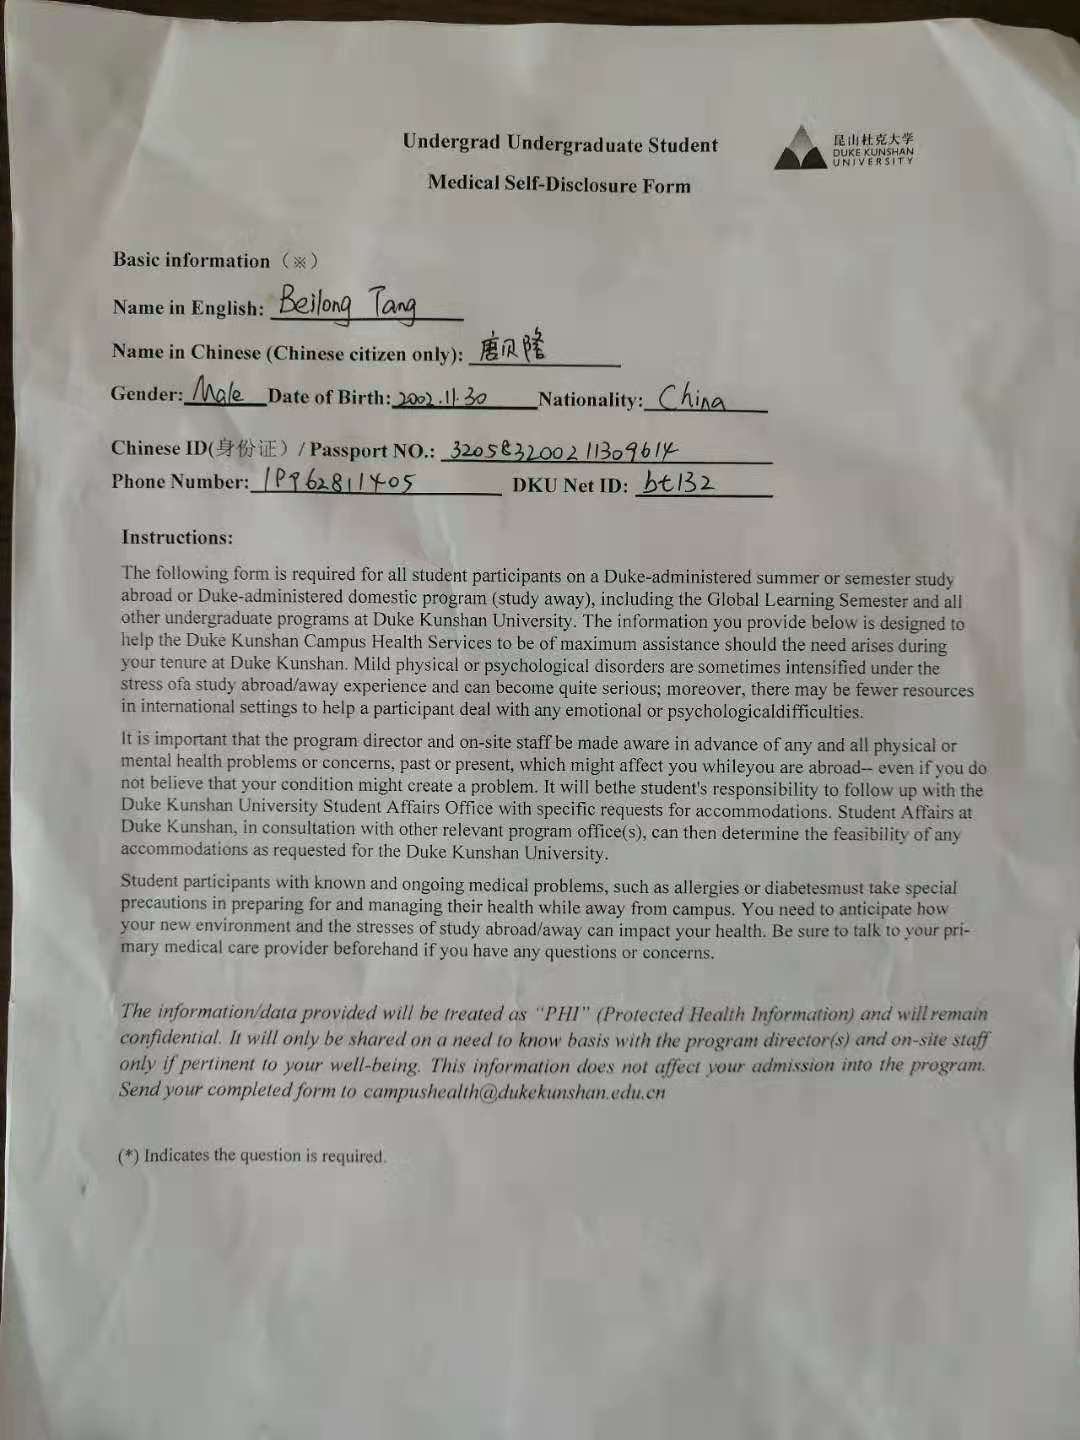 Undergrad Undergraduate Student
Medical Self-Disclosure Form
昆山杜克大学
DUKE KUNSHAN
UNIVERSITY
Basic information（※）
Name in English: Beilong Tang
Name in Chinese (Chinese citizen only): 唐贝隆
Gender: Male Date of Birth: 2002.11.30 Nationality: China
Chinese ID(身份证）/ Passport NO.: 320583200211309614
Phone Number: 19962811405 DKU Net ID: bt132
Instructions:
The following form is required for all student participants on a Duke-administered summer or semester study
abroad or Duke-administered domestic program (study away), including the Global Learning Semester and all
other undergraduate programs at Duke Kunshan University. The information you provide below is designed to
help the Duke Kunshan Campus Health Services to be of maximum assistance should the need arises during
your tenure at Duke Kunshan. Mild physical or psychological disorders are sometimes intensified under the
stress ofa study abroad/away experience and can become quite serious; moreover, there may be fewer resources
in international settings to help a participant deal with any emotional or psychologicaldifficulties.
It is important that the program director and on-site staff be made aware in advance of any and all physical or
mental health problems or concerns, past or present, which might affect you whileyou are abroad-- even if you do
not believe that your condition might create a problem. It will bethe student's responsibility to follow up with the
Duke Kunshan University Student Affairs Office with specific requests for accommodations. Student Affairs at
Duke Kunshan, in consultation with other relevant program office(s), can then determine the feasibility of any
accommodations as requested for the Duke Kunshan University.
Student participants with known and ongoing medical problems, such as allergies or diabetesmust take special
precautions in preparing for and managing their health while away from campus. You need to anticipate how
your new environment and the stresses of study abroad/away can impact your health. Be sure to talk to your pri-
mary medical care provider beforehand if you have any questions or concerns.
The information/data provided will be treated as “PHI” (Protected Health Information) and will remain
confidential. It will only be shared on a need to know basis with the program director(s) and on-site staff
only if pertinent to your well-being. This information does not affect your admission into the program.
Send your completed form to campushealth@dukekunshan.edu.cn
(*) Indicates the question is required.